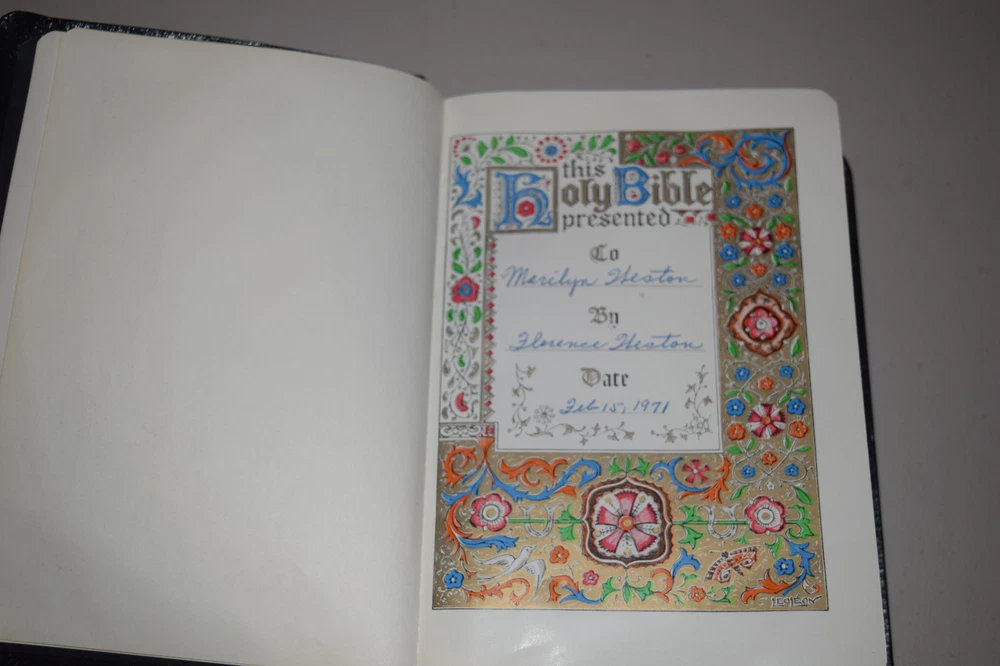 this
Holy Bible
presented
To
Marilyn Heston
By
Florence Heston
Date
Feb 15, 1971